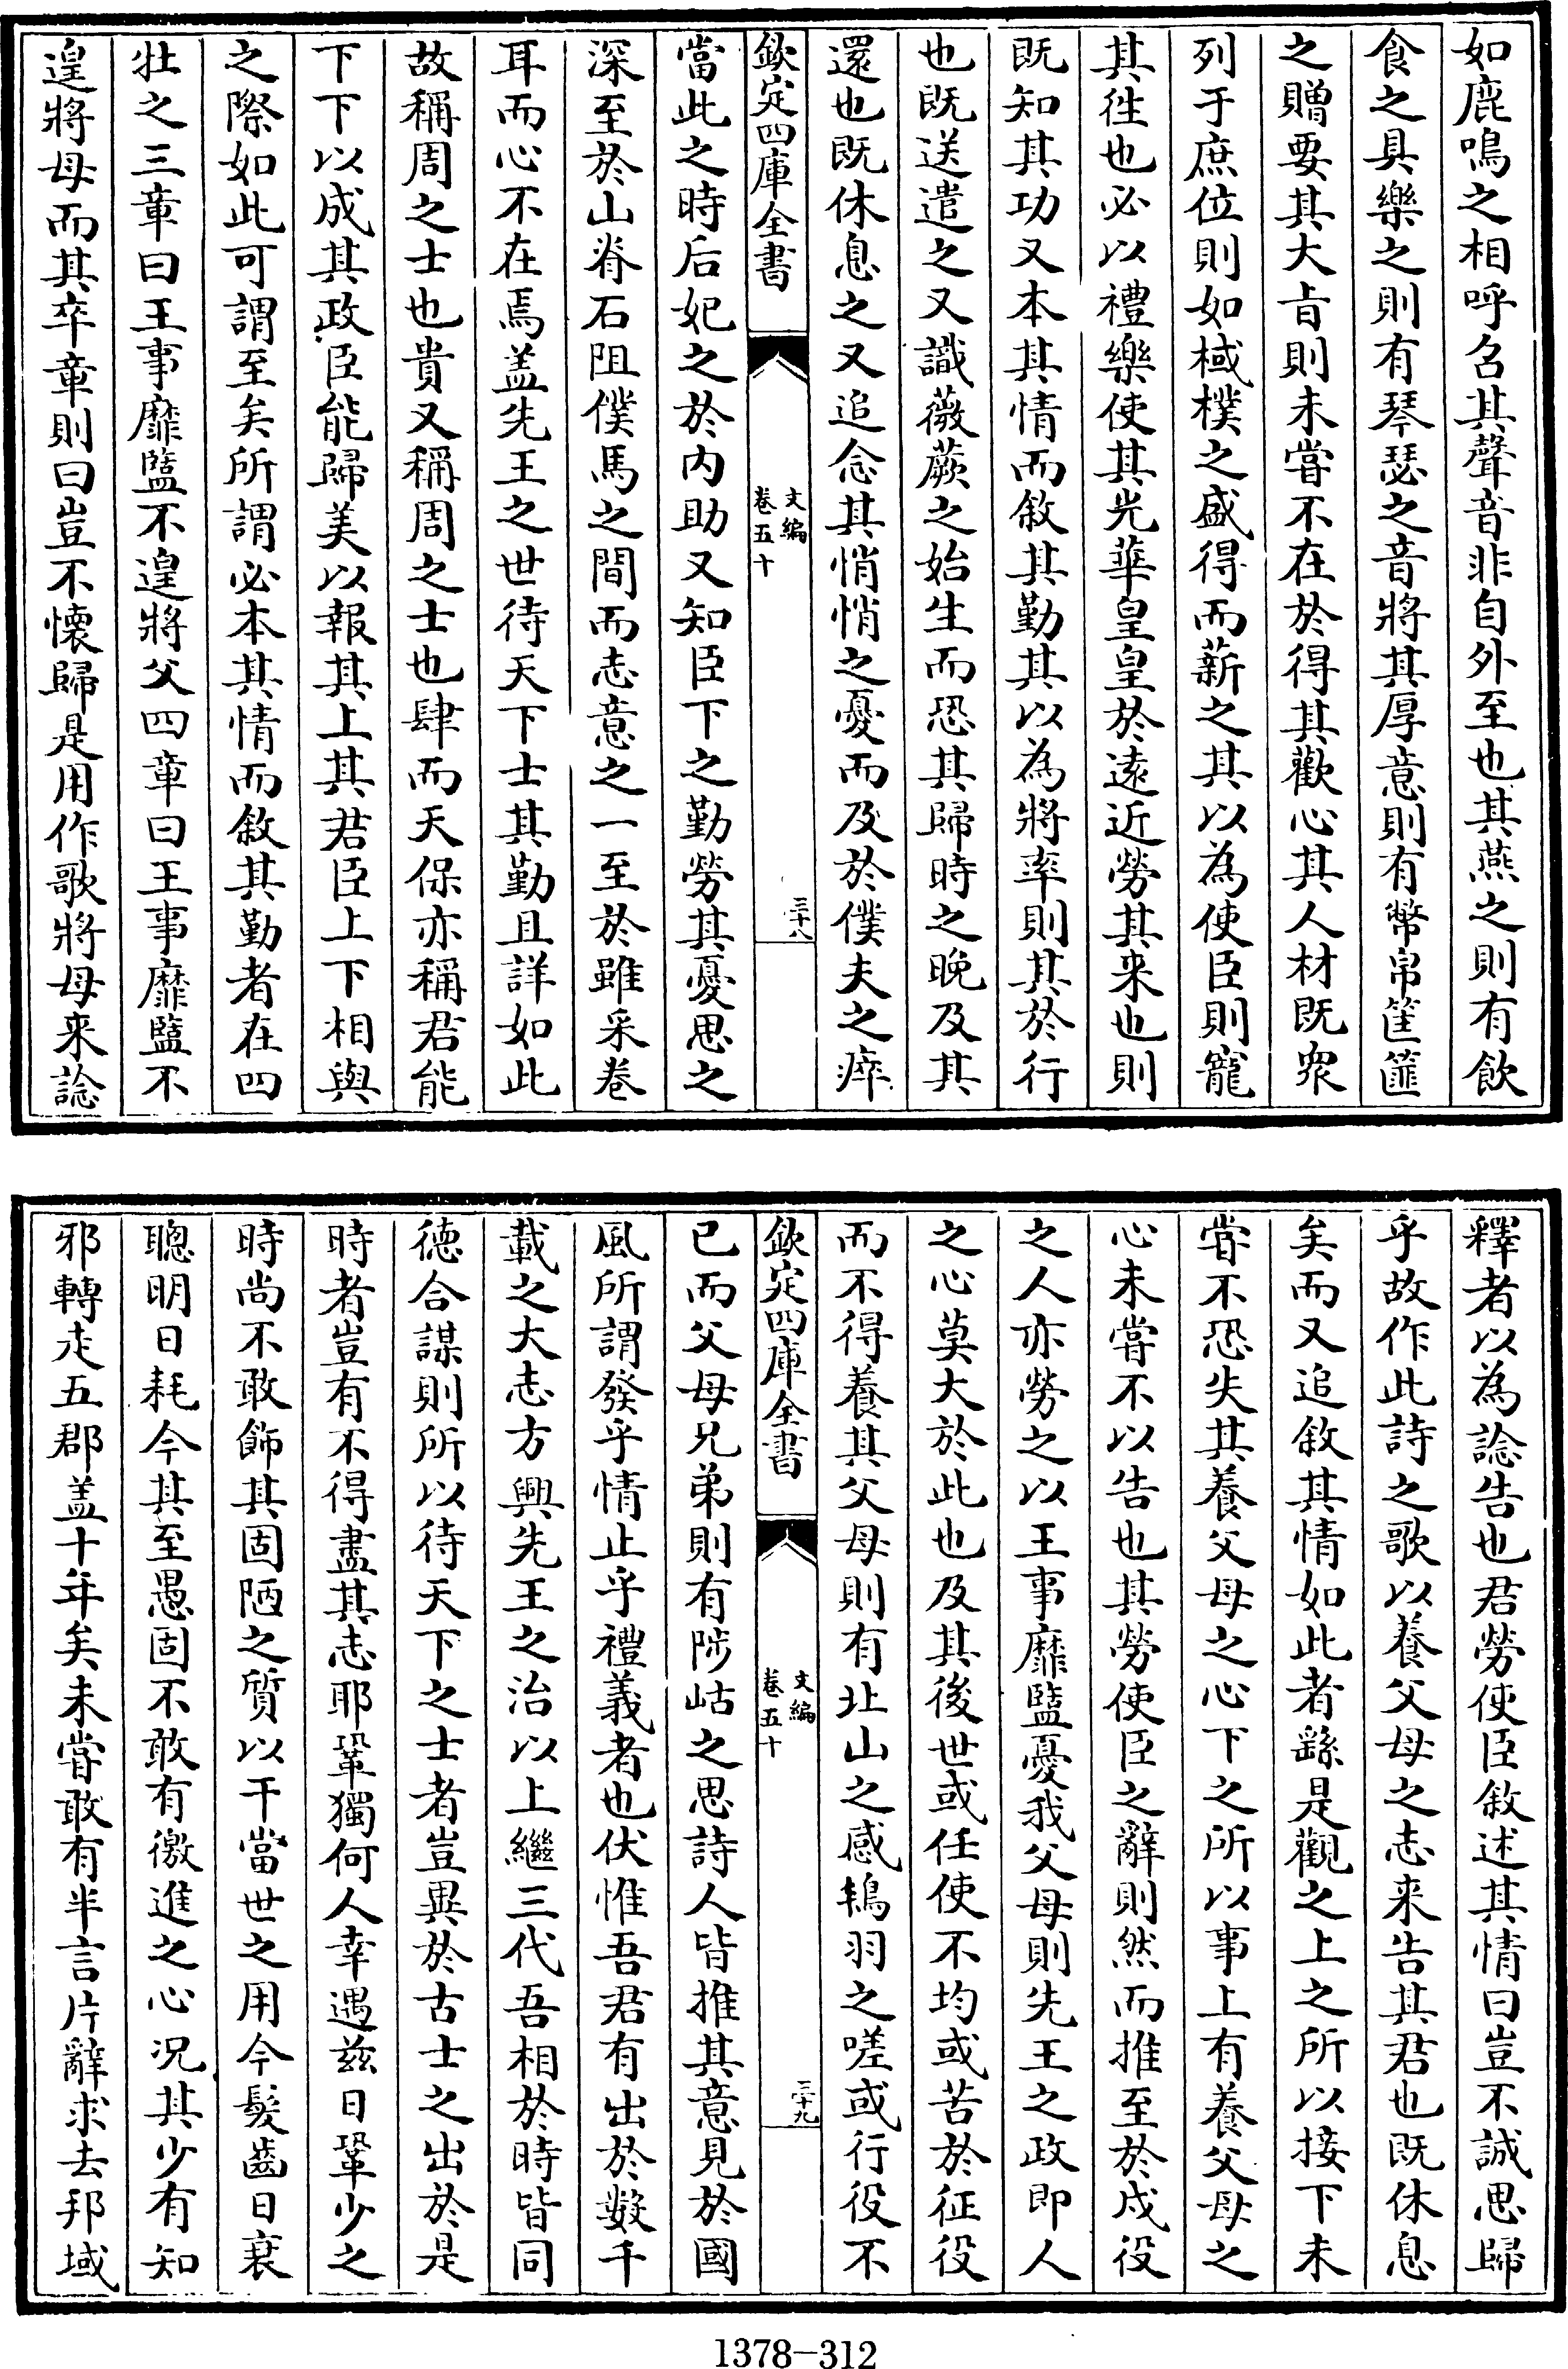 如鹿鳴之相呼名其聲音非自外至也其燕之則有飲
食之具樂之則有琴瑟之音將其厚意則有幣帛筐篚
之贈要其大㫖則未嘗不在於得其歡心其人材既衆
列于庶位則如棫樸之盛得而薪之其以為使臣則寵
其徃也必以禮樂使其光華皇皇於逺近勞其来也則
既知其功又本其情而敘其勤其以為將率則其於行
也既送遣之又識薇蕨之始生而恐其歸時之晚及其
還也既休息之又追念其悄悄之憂而及於僕夫之瘁
欽定四庫全書
文編
卷五十
三十八
當此之時后妃之於内助又知臣下之勤勞其憂思之
深至於山脊石阻僕馬之間而志意之一至於雖采卷
耳而心不在焉盖先王之世待天下士其勤且詳如此
故稱周之士也貴又稱周之士也肆而天保亦稱君能
下下以成其政臣能歸美以報其上其君臣上下相與
之際如此可謂至矣所謂必本其情而敘其勤者在四
牡之三章曰王事靡盬不遑將父四章曰王事靡盬不
遑將母而其卒章則曰豈不懷歸是用作歌將母来諗
釋者以為諗告也君勞使臣敘述其情曰豈不誠思歸
乎故作此詩之歌以養父母之志来告其君也既休息
矣而又追敘其情如此者繇是觀之上之所以接下未
嘗不恐失其養父母之心下之所以事上有養父母之
心未嘗不以告也其勞使臣之辭則然而推至於戍役
之人亦勞之以王事靡盬憂我父母則先王之政即人
之心莫大於此也及其後世或任使不均或苦於征役
而不得養其父母則有北山之感鴇羽之嗟或行役不
欽定四庫全書
文編
卷五十
三十九
已而父母兄弟則有陟岵之思詩人皆推其意見於國
風所謂發乎情止乎禮義者也伏惟吾君有出於數千
載之大志方興先王之治以上繼三代吾相於時皆同
徳合謀則所以待天下之士者豈異於古士之出於是
時者豈有不得盡其志耶鞏獨何人幸遇兹日鞏少之
時尚不敢飾其固陋之質以干當世之用今髮齒日衰
聰明日耗今其至愚固不敢有徼進之心况其少有知
邪轉走五郡盖十年矣未嘗敢有半言片辭求去邦域
1378-312